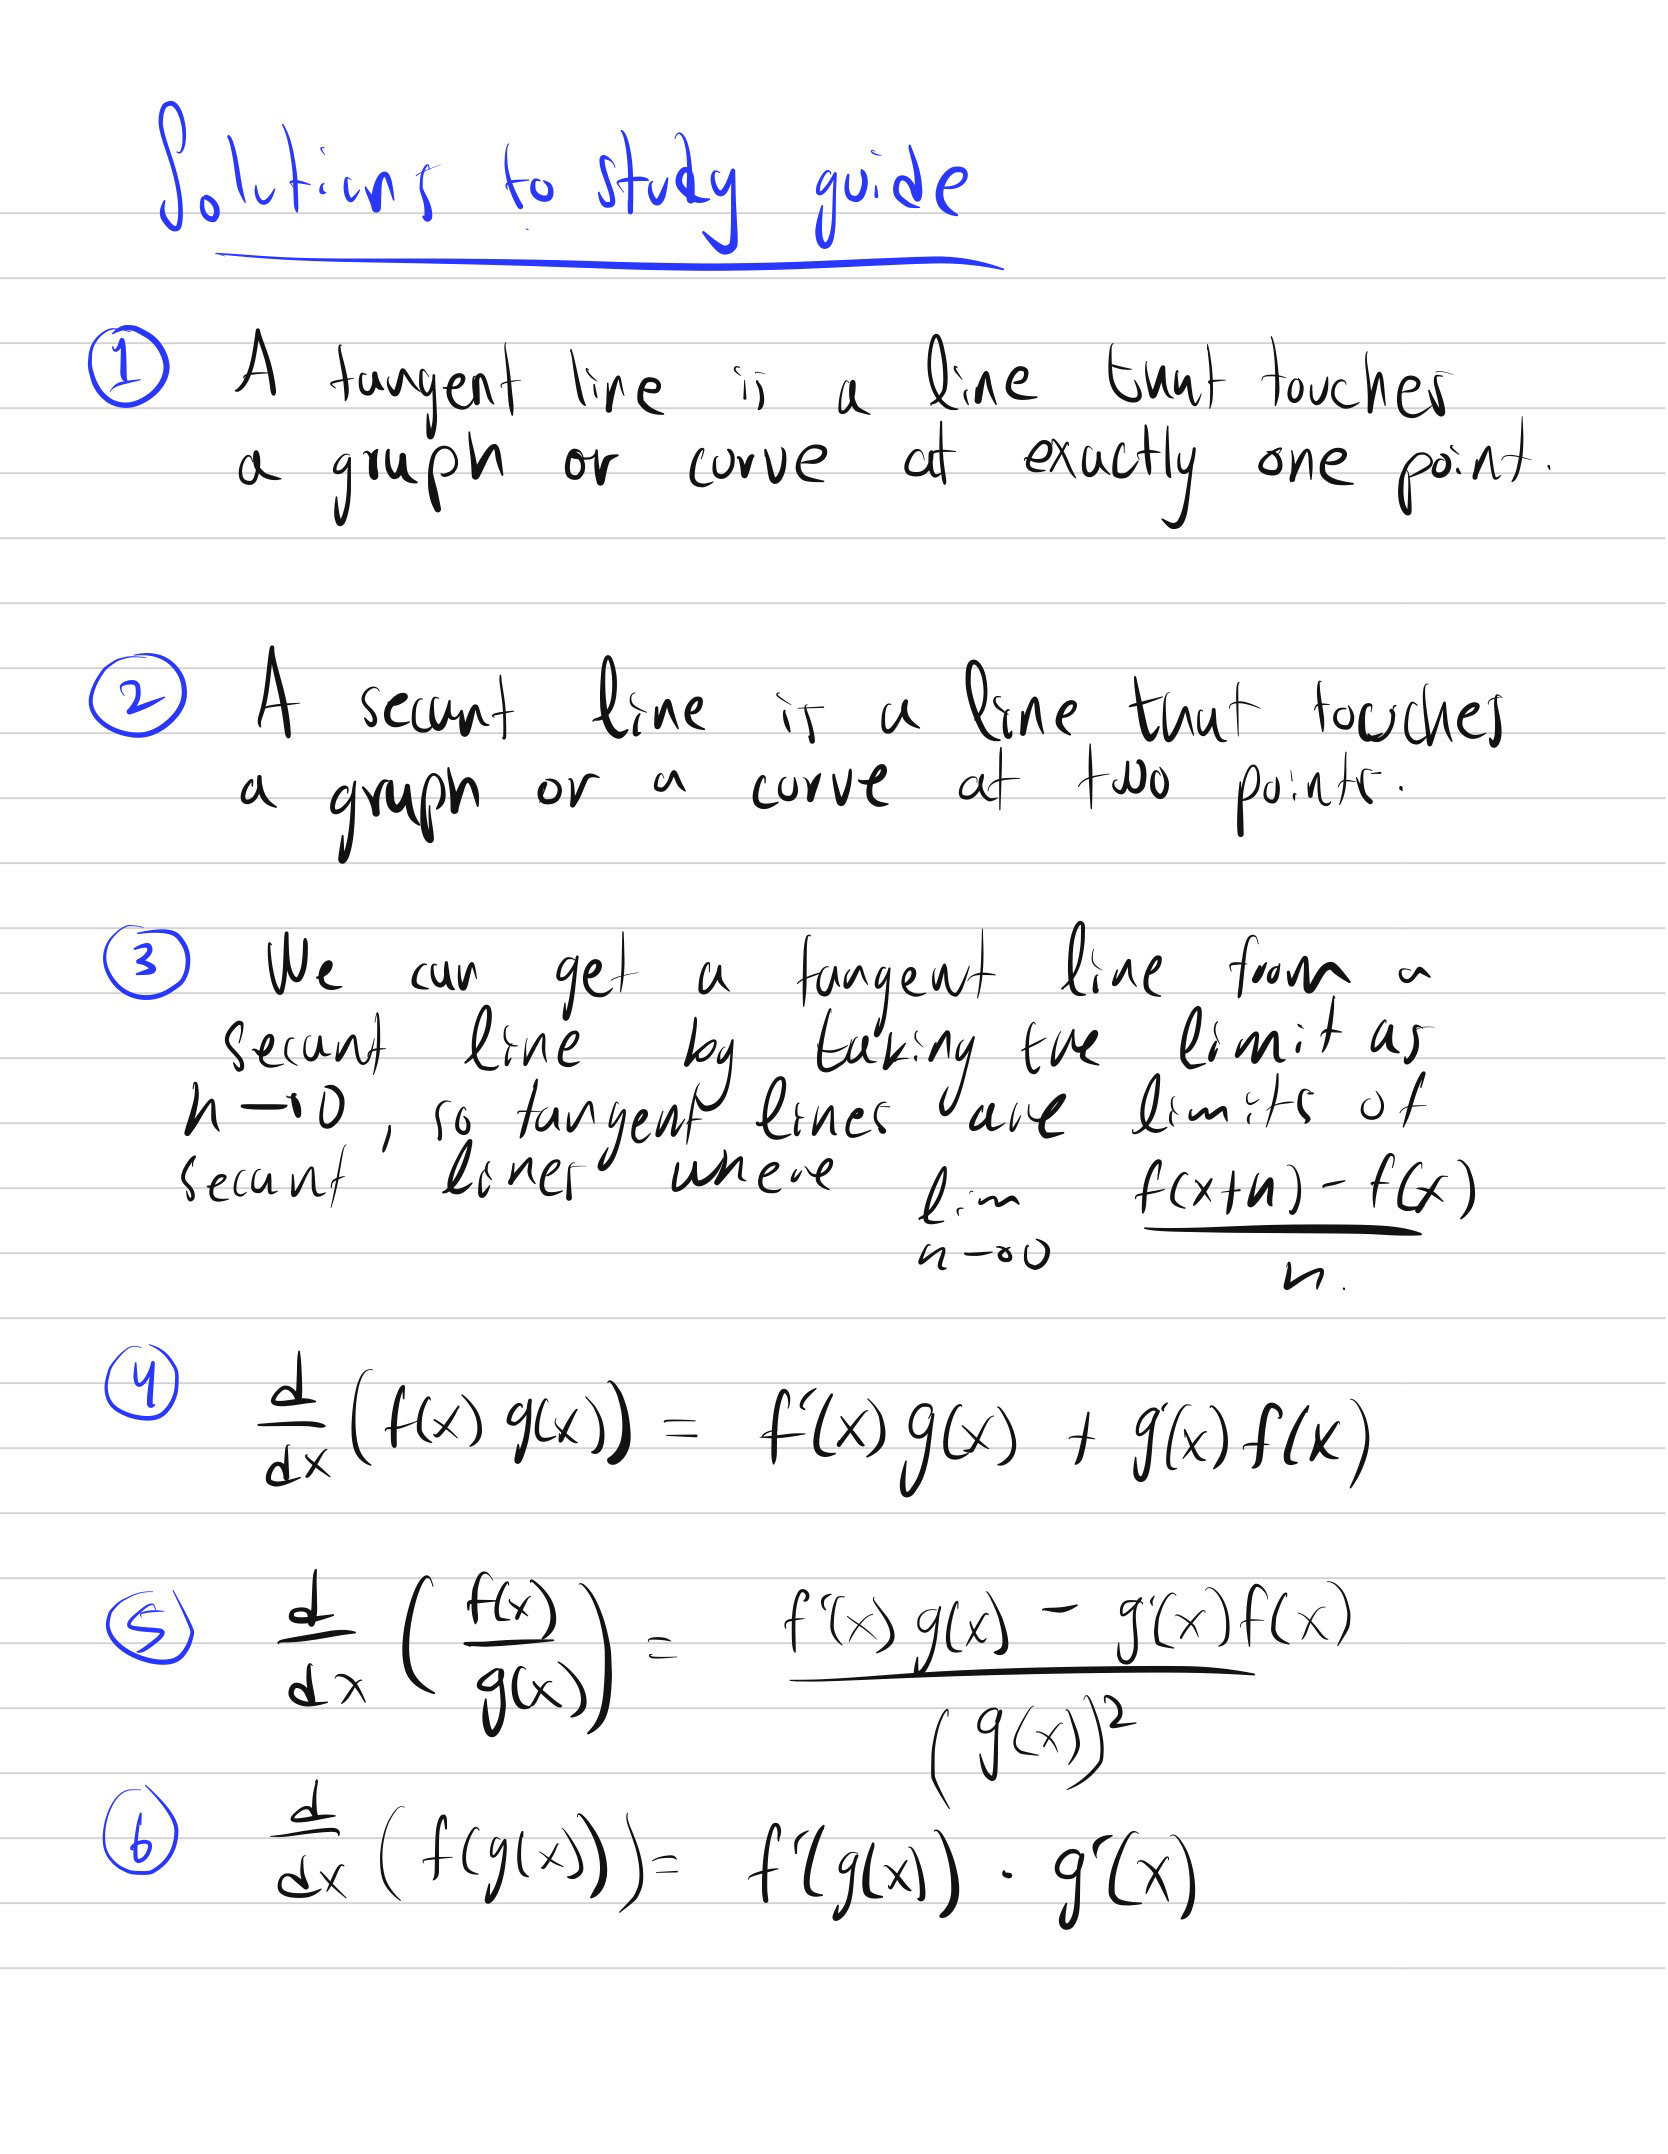 Solutions to study guide
① A tangent line is a line that touches
a graph or curve at exactly one point.
② A secant line is a line that touches
a graph or a curve at two points.
③ We can get a tangent line from a
secant line by taking the limit as
h→0, so tangent lines are limits of
secant lines where lim h→0 (f(x+h) - f(x))/h.
④ d/dx (f(x) g(x)) = f'(x) g(x) + g'(x) f(x)
⑤ d/dx (f(x)/g(x)) = (f'(x) g(x) - g'(x) f(x))/(g(x))²
⑥ d/dx (f(g(x))) = f'(g(x)) · g'(x)